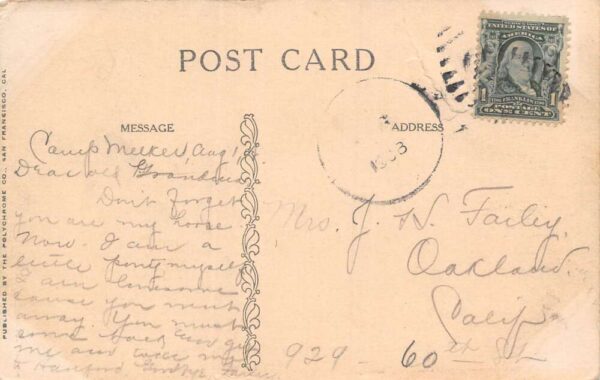 POST CARD
MESSAGE
ADDRESS
UNITED STATES OF
FRANKLIN
1 POSTAGE 1
ONE CENT
1908
PUBLISHED BY THE POLYCHROME CO., SAN FRANCISCO, CAL
Camp Meeker, Aug
Dear old Grandma
Don't forget
you are my horse
now. I am a
little pony myself
I am lonesome
cause you went
away. You must
come back and
me and
Mrs. J. H. Failey
Oakland
Calif
929 - 60th St